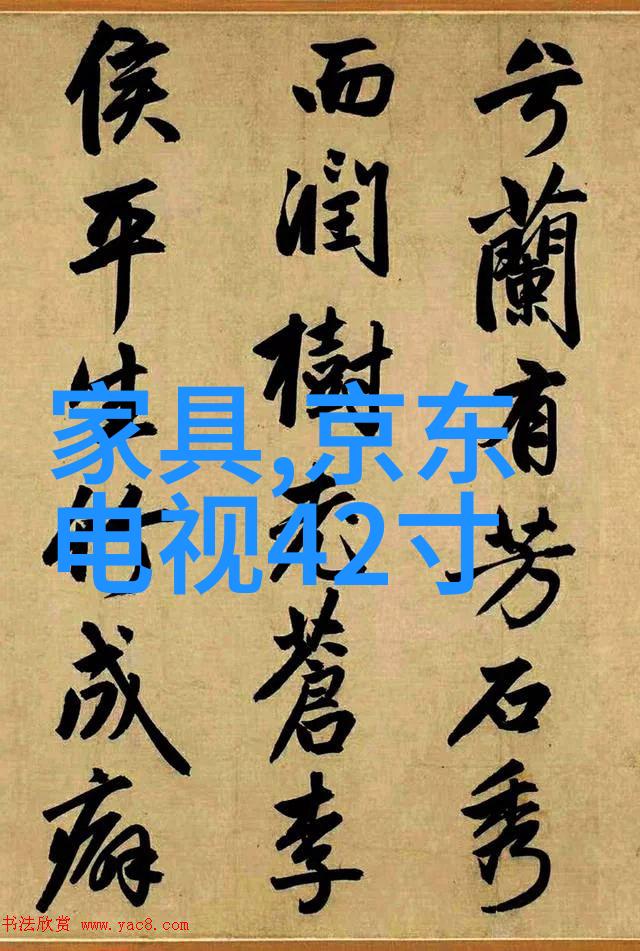 兮蘭有芳石秀
而潤樹老蒼李
侯平生竹成癖
家具,京东
电视42寸
书法欣赏 www.yac8.com